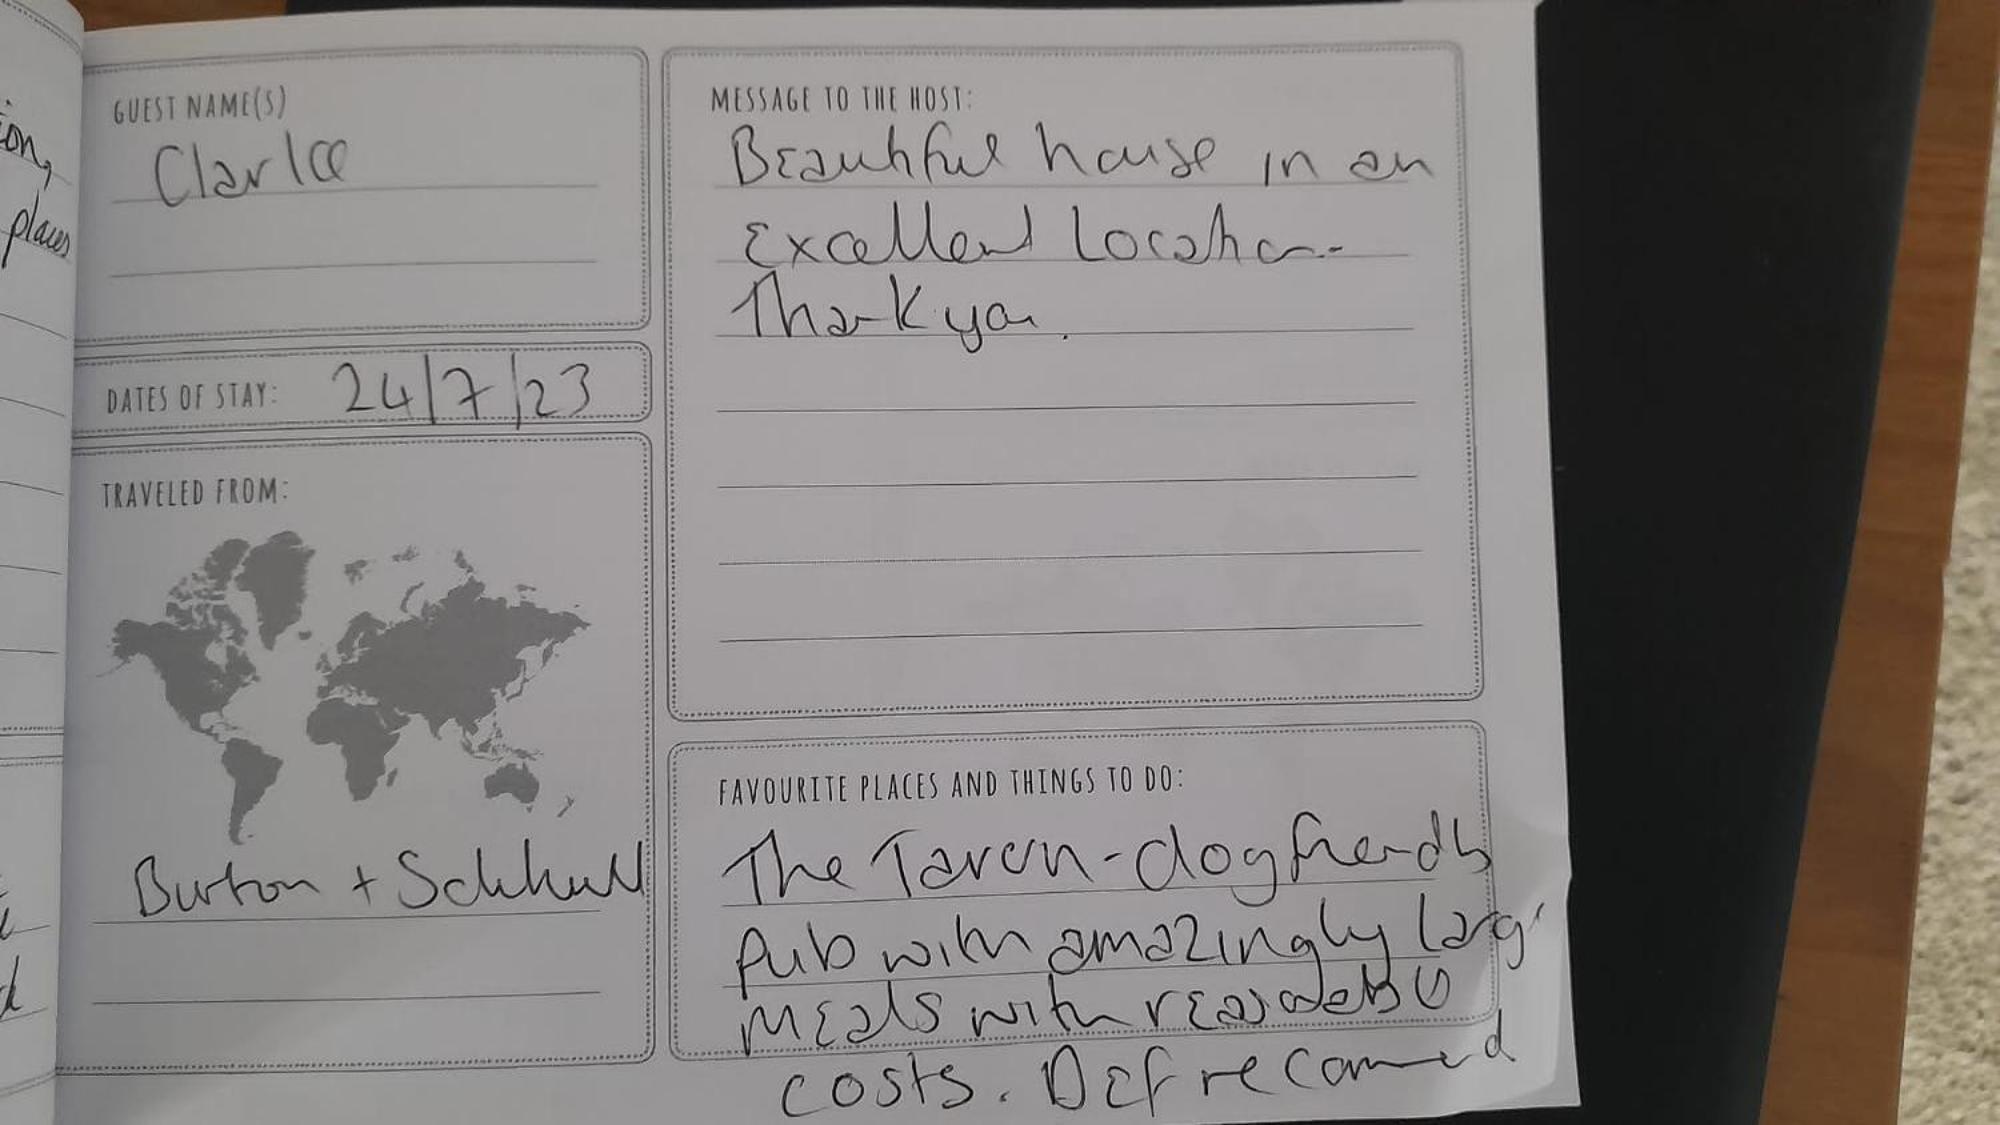 ion,
places
GUEST NAME(S)
DATES OF STAY: 24/7/23
TRAVELED FROM:
Burton + Solihull
MESSAGE TO THE HOST:
Beautiful house in an
Excellent Location.
Thank you.
FAVOURITE PLACES AND THINGS TO DO:
The Tavern - dog friendly
Pub with amazingly large
Meals with reasonable
costs. Def recommend